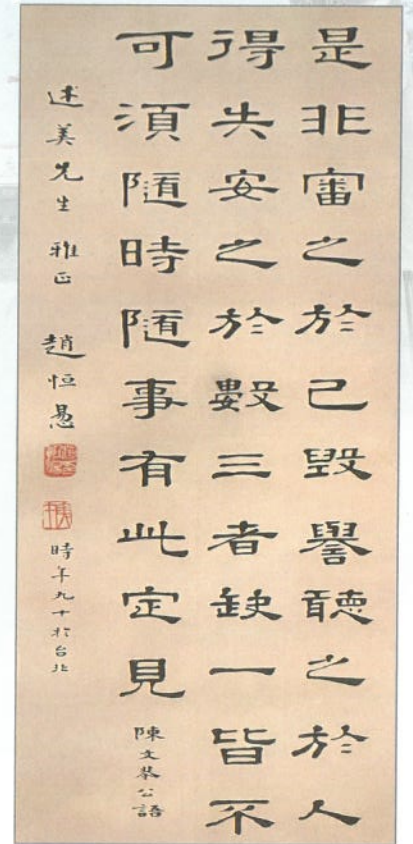 是非審之於己毀譽聽之於人
得失安之於數三者缺一皆不
可須隨時隨事有此定見 陳文恭公語
述美先生 雅正 趙恒惖 時年九十於台北